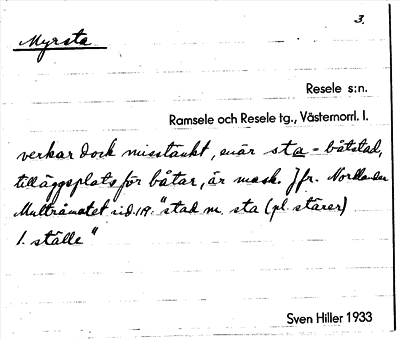 3.
Myrsta
Resele s:n.
Ramsele och Resele tg., Västernorrl. l.
verkar dock misstänkt, enär sta = båtstad,
tilläggsplats för båtar, är mask. Jfr. Nordlander
Multråmålet sid 119: "stad m. sta (pl. stärer)
1. ställe"
Sven Hiller 1933